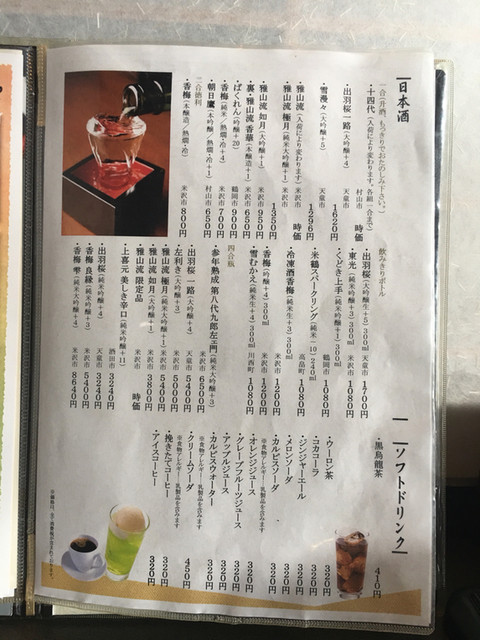 日本酒
一合(升酒、もっきりでおたのしみ下さい。)
・十四代(入荷により変わります。各組一合まで) 村山市 時価
・出羽桜一路(大吟醸+4) 天童市 1620円
・雪漫々(大吟醸+5) 天童市 1296円
・雅山流(入荷により変わります) 米沢市 時価
・雅山流 極月(純米大吟醸+1) 米沢市 1350円
・雅山流 如月(大吟醸+1) 米沢市 950円
・裏・雅山流 香華(本醸造+1) 米沢市 650円
・ばくれん(吟醸+20) 鶴岡市 900円
・香梅(純米/熱燗・冷+4) 米沢市 700円
・朝日鷹(本吟醸/熱燗・冷+1) 村山市 650円
二合徳利
・香梅(本醸造/熱燗・冷+1) 米沢市 800円
飲みきりボトル
・出羽桜(大吟醸生+5)300ml 天童市 1700円
・東光(純米吟醸+3)300ml 米沢市 1080円
・くどき上手(純米吟醸+1)300ml 鶴岡市 1080円
・米鶴スパークリング(純米-10)240ml 高畠町 1080円
・冷凍酒香梅(純米生+3)300ml 米沢市 1200円
・香梅(吟醸+4)300ml 米沢市 1200円
・雪むかえ(純米生+4)300ml 川西町 1080円
四合瓶
・参年熟成 第八代九郎左ヱ門(純米大吟醸+3) 米沢市 6500円
・出羽桜 一路(大吟醸+4) 天童市 5400円
・左利き(大吟醸+3) 米沢市 5000円
・雅山流 極月(純米大吟醸+1) 米沢市 5400円
・雅山流 如月(大吟醸+1) 米沢市 3800円
・雅山流 限定品 米沢市 時価
・上喜元 美しき辛口(純米吟醸+11) 酒田市 3240円
・出羽桜(純米吟醸+4) 天童市 3240円
・香梅 良縁(純米吟醸+3) 米沢市 5400円
・香梅 雫(純米大吟醸+4) 米沢市 8640円
ソフトドリンク
・黒烏龍茶 410円
・ウーロン茶 320円
・コカコーラ 320円
・ジンジャーエール 320円
・メロンソーダ 320円
・カルピスソーダ 320円
※食物アレルギー:乳製品を含みます
・オレンジジュース 320円
・グレープフルーツジュース 320円
・アップルジュース 320円
・カルピスウォーター 320円
※食物アレルギー:乳製品を含みます
・クリームソーダ 450円
※食物アレルギー:乳製品を含みます
・挽きたてコーヒー 320円
・アイスコーヒー 320円